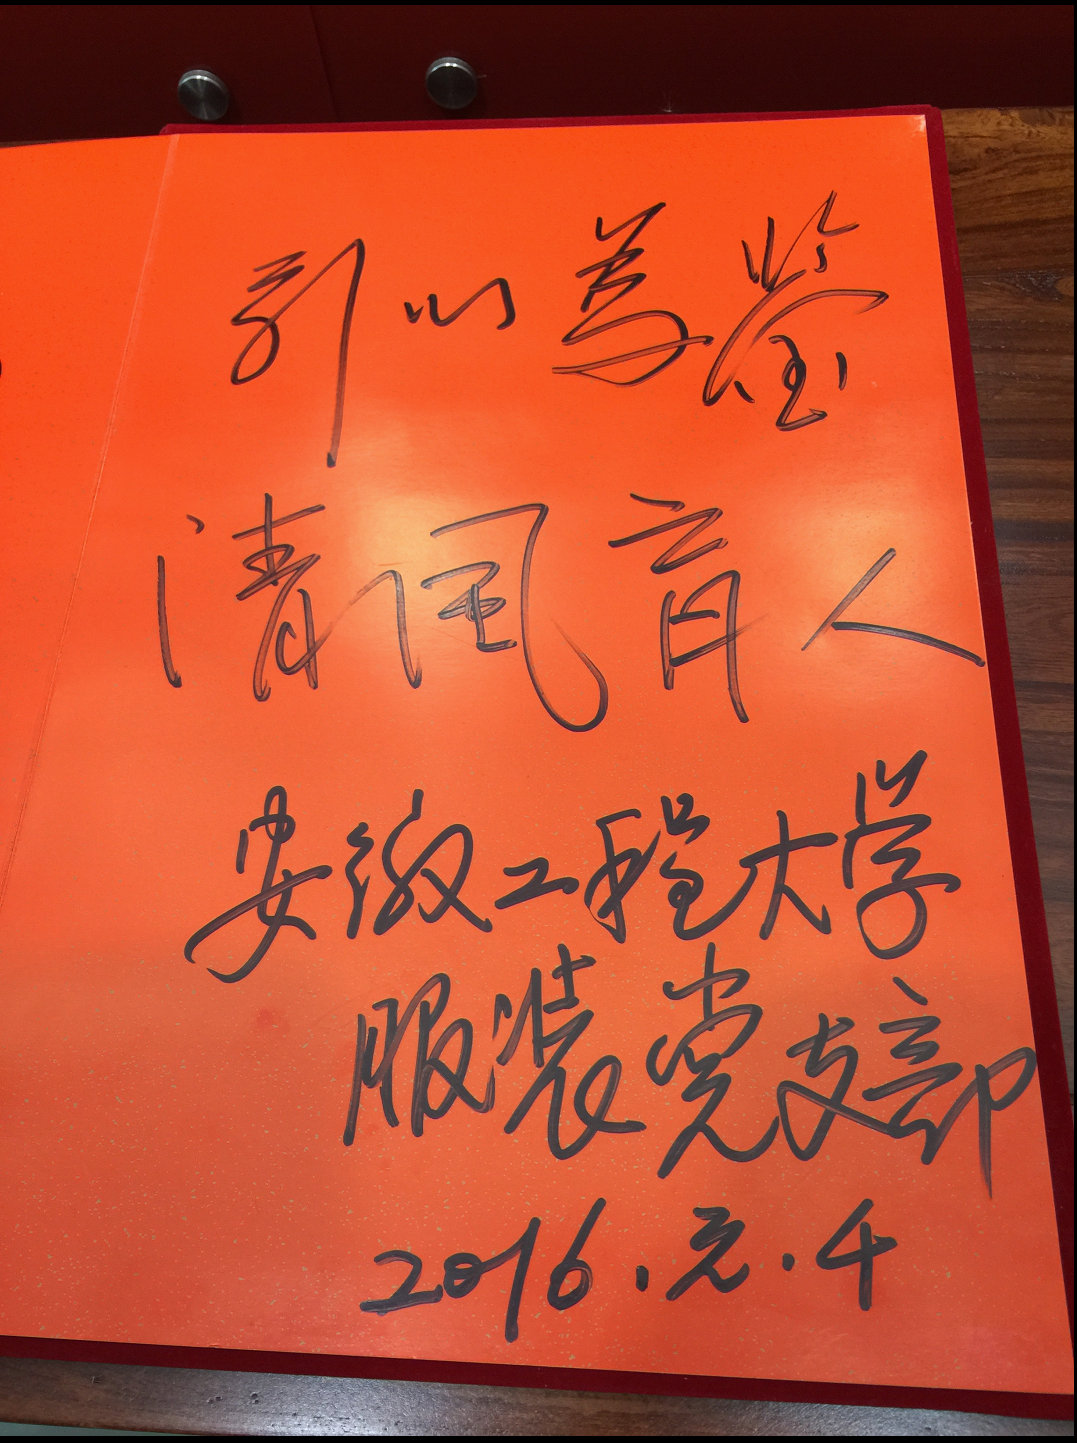 引以为鉴
清风育人
安徽工程大学
服装党支部
2016.元.4